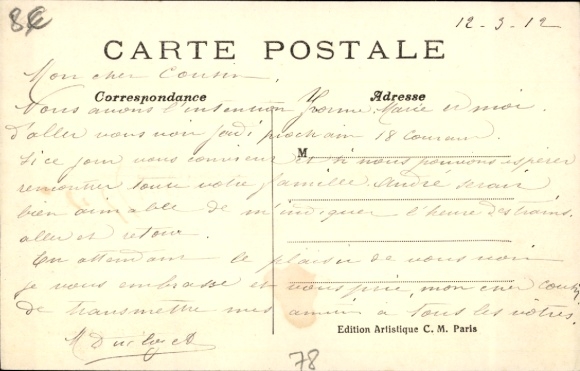 8
12-3-12
CARTE POSTALE
Mon cher Cousin,
Correspondance
Adresse
Nous avons l'intention Yvonne Marie et moi
d'aller vous voir jeudi prochain 18 courant.
M
Si ce jour vous convient et si nous pouvons espérer
rencontrer toute votre famille. André serait
bien aimable de m'indiquer l'heure des trains.
aller et retour.
En attendant le plaisir de vous voir
je vous embrasse et vous prie, mon cher Cousin
de transmettre mes amitiés à tous les vôtres.
Edition Artistique C. M. Paris
78